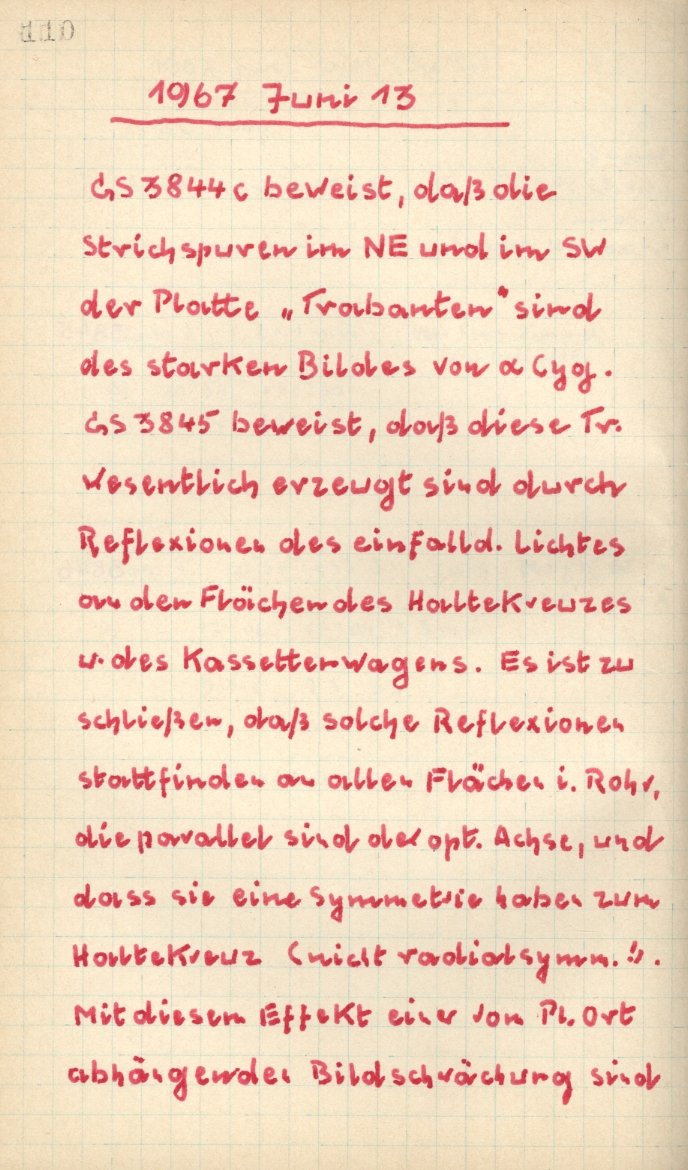 110
1967 Juni 13
GS 3844c beweist, daß die
Strichspuren im NE und im SW
der Platte „Trabanten" sind
des starken Bildes von α Cyg.
GS 3845 beweist, daß diese Tr.
wesentlich erzeugt sind durch
Reflexionen des einfalld. Lichtes
an den Flächen des Haltekreuzes
u. des Kassettenwagens. Es ist zu
schließen, daß solche Reflexionen
stattfinden an allen Flächen i. Rohr,
die parallel sind der opt. Achse, und
dass sie eine Symmetrie haben zum
Haltekreuz (nicht radialsymm.!).
Mit diesem Effekt einer vom Pl. Ort
abhängenden Bildschwächung sind